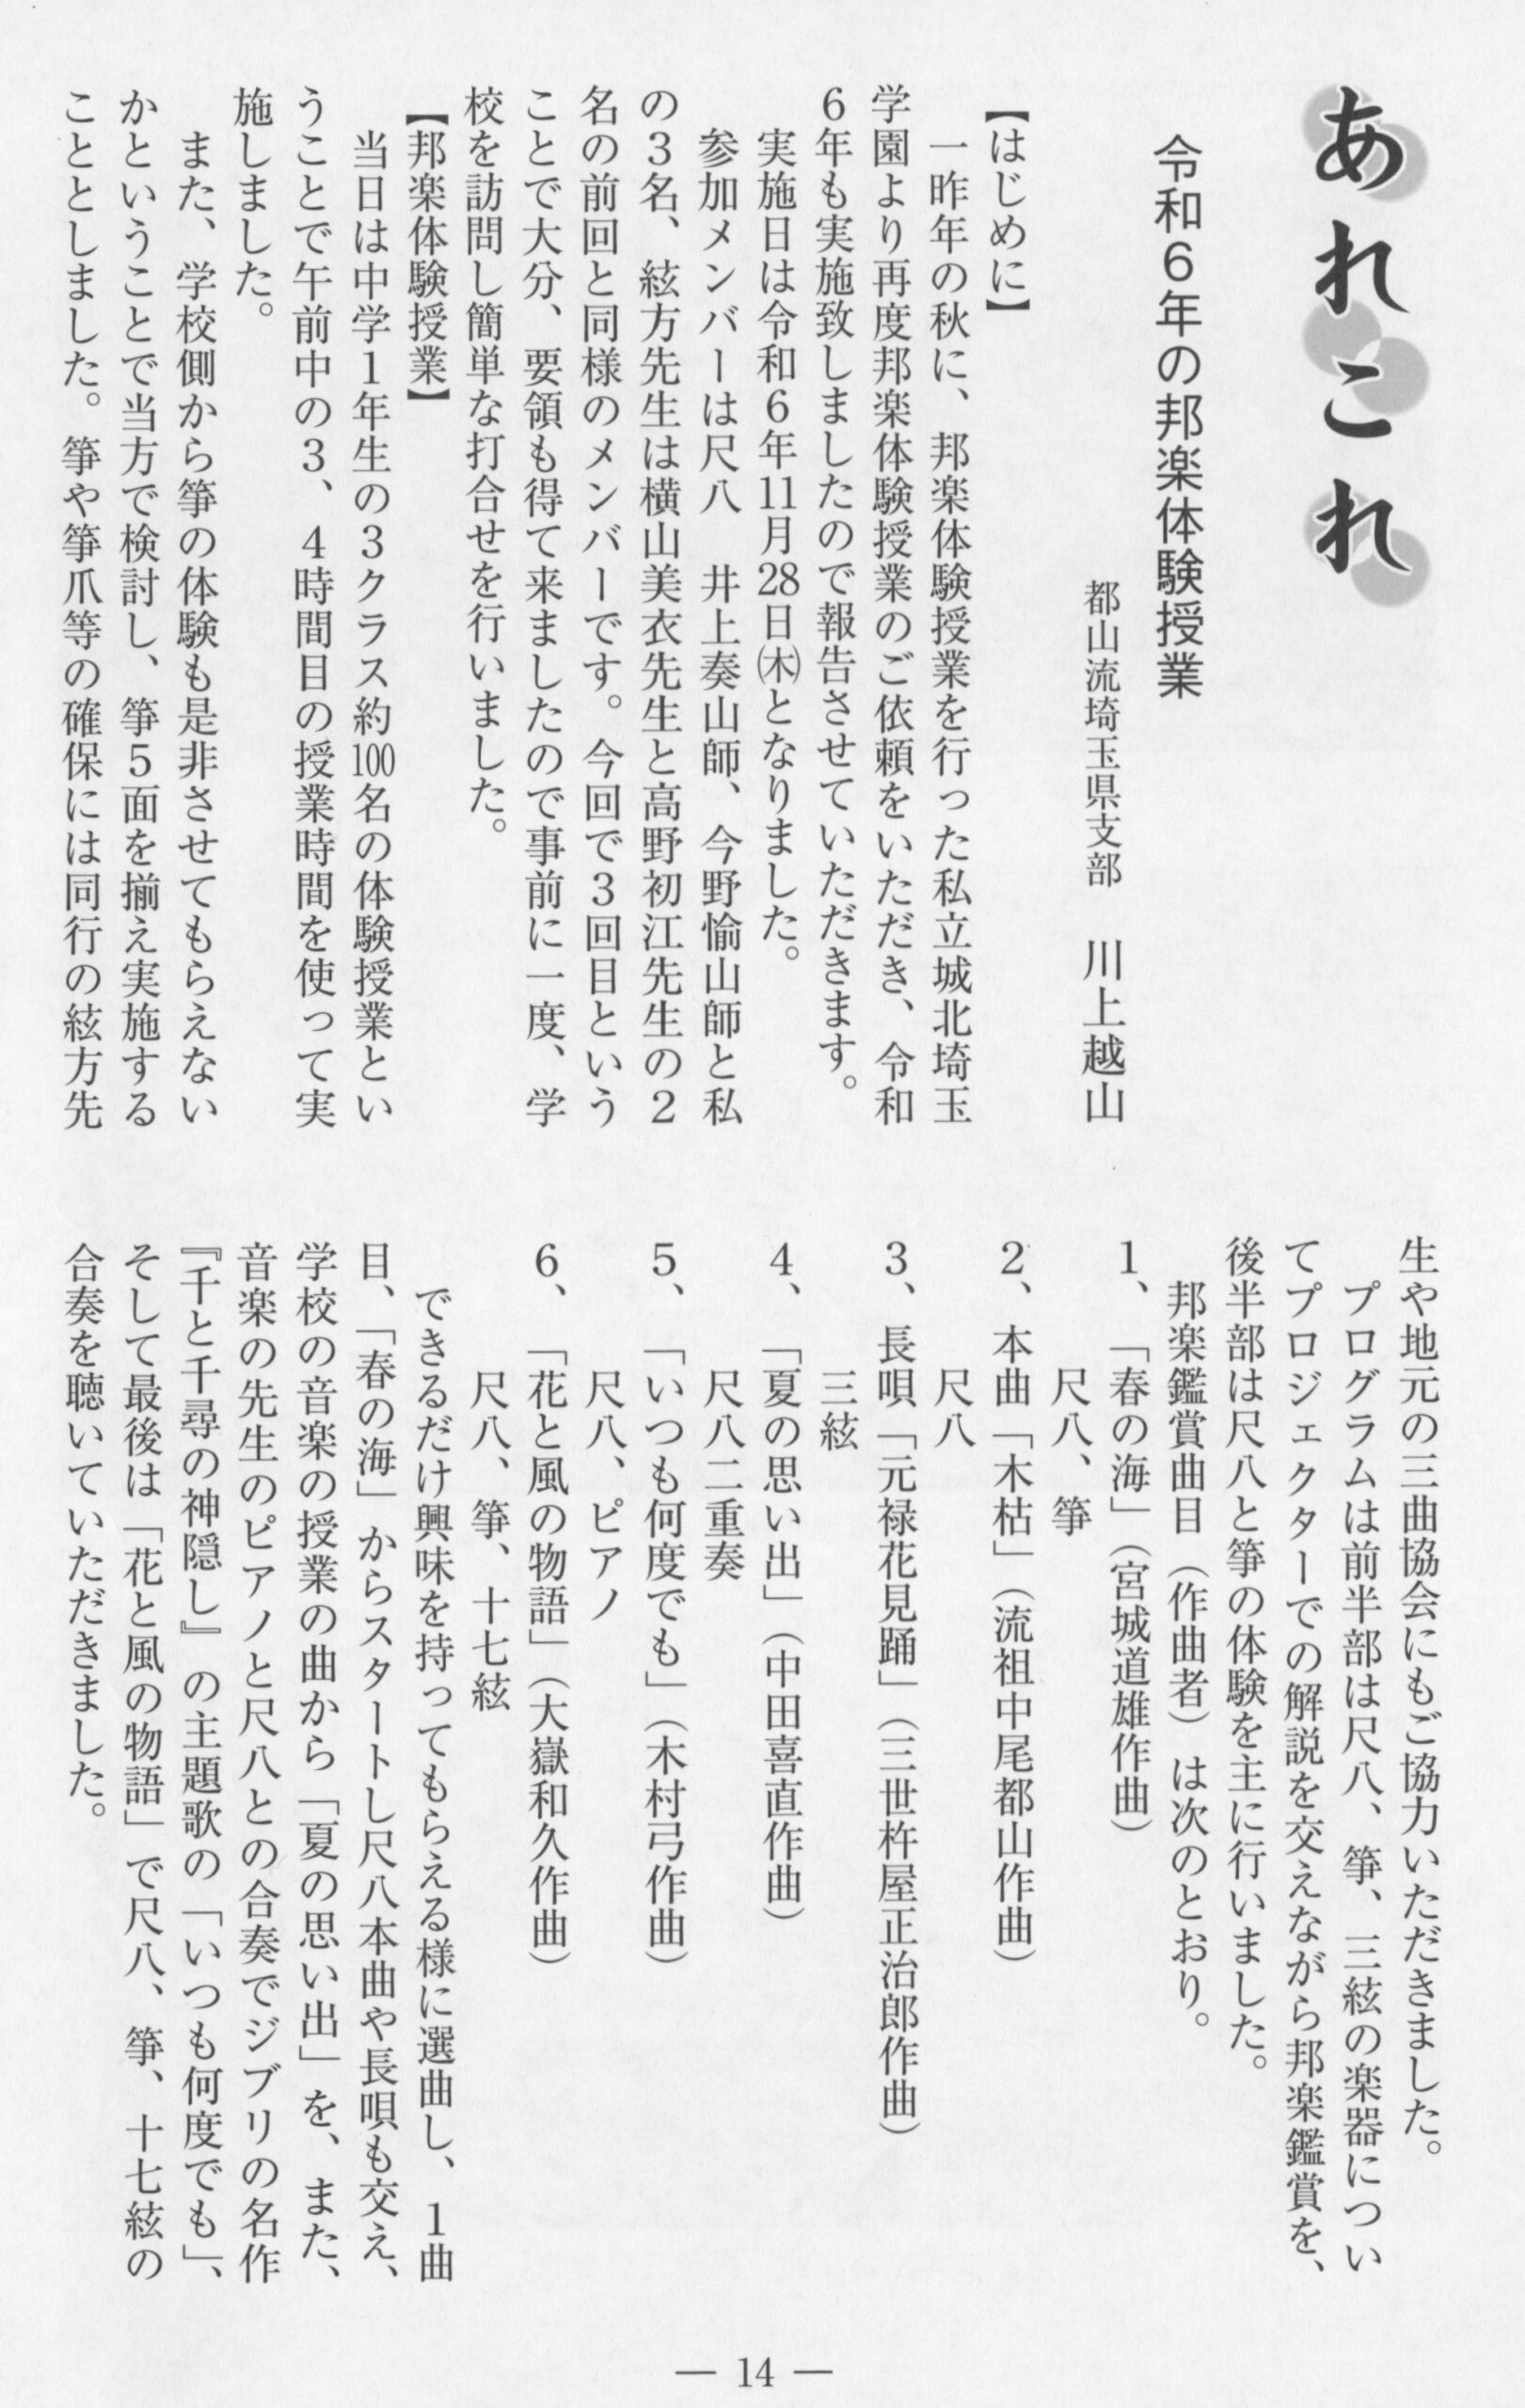 あれこれ
令和６年の邦楽体験授業
都山流埼玉県支部　川上越山
【はじめに】
　一昨年の秋に、邦楽体験授業を行った私立城北埼玉
学園より再度邦楽体験授業のご依頼をいただき、令和
６年も実施致しましたので報告させていただきます。
　実施日は令和６年11月28日㈭となりました。
　参加メンバーは尺八　井上奏山師、今野愉山師と私
の３名、絃方先生は横山美衣先生と高野初江先生の２
名の前回と同様のメンバーです。今回で３回目という
ことで大分、要領も得て来ましたので事前に一度、学
校を訪問し簡単な打合せを行いました。
【邦楽体験授業】
　当日は中学１年生の３クラス約100名の体験授業とい
うことで午前中の３、４時間目の授業時間を使って実
施しました。
　また、学校側から箏の体験も是非させてもらえない
かということで当方で検討し、箏５面を揃え実施する
こととしました。箏や箏爪等の確保には同行の絃方先
生や地元の三曲協会にもご協力いただきました。
　プログラムは前半部は尺八、箏、三絃の楽器につい
てプロジェクターでの解説を交えながら邦楽鑑賞を、
後半部は尺八と箏の体験を主に行いました。
　邦楽鑑賞曲目（作曲者）は次のとおり。
１、「春の海」（宮城道雄作曲）
　　　尺八、箏
２、本曲「木枯」（流祖中尾都山作曲）
　　　尺八
３、長唄「元禄花見踊」（三世杵屋正治郎作曲）
　　　三絃
４、「夏の思い出」（中田喜直作曲）
　　　尺八二重奏
５、「いつも何度でも」（木村弓作曲）
　　　尺八、ピアノ
６、「花と風の物語」（大嶽和久作曲）
　　　尺八、箏、十七絃
　できるだけ興味を持ってもらえる様に選曲し、１曲
目、「春の海」からスタートし尺八本曲や長唄も交え、
学校の音楽の授業の曲から「夏の思い出」を、また、
音楽の先生のピアノと尺八との合奏でジブリの名作
『千と千尋の神隠し』の主題歌の「いつも何度でも」、
そして最後は「花と風の物語」で尺八、箏、十七絃の
合奏を聴いていただきました。
— 14 —